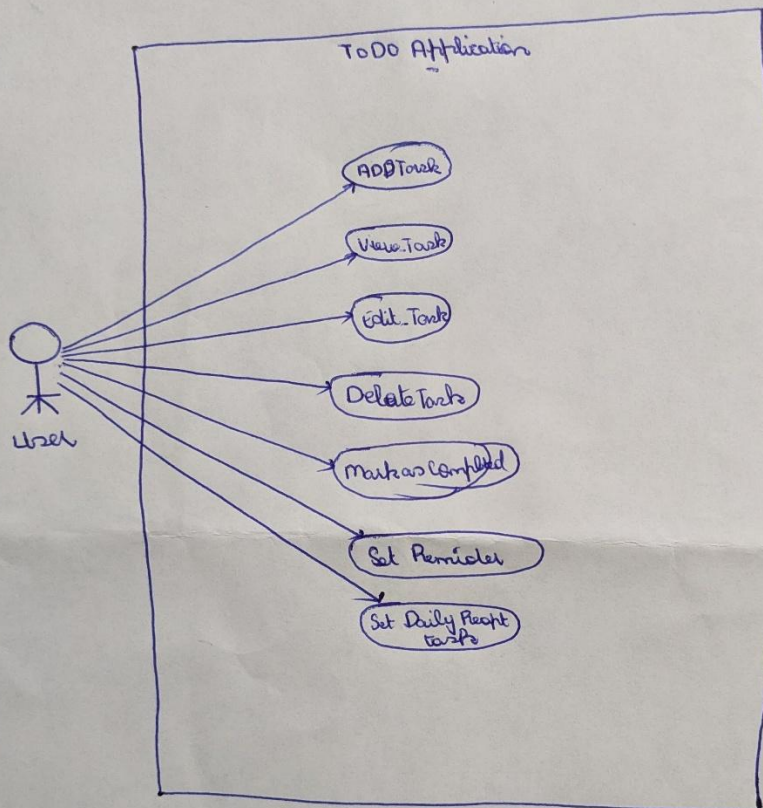 ToDO Application
ADD Task
View Task
Edit Task
Delete Task
Mark as Completed
Set Remider
Set Daily Reapt
task
User